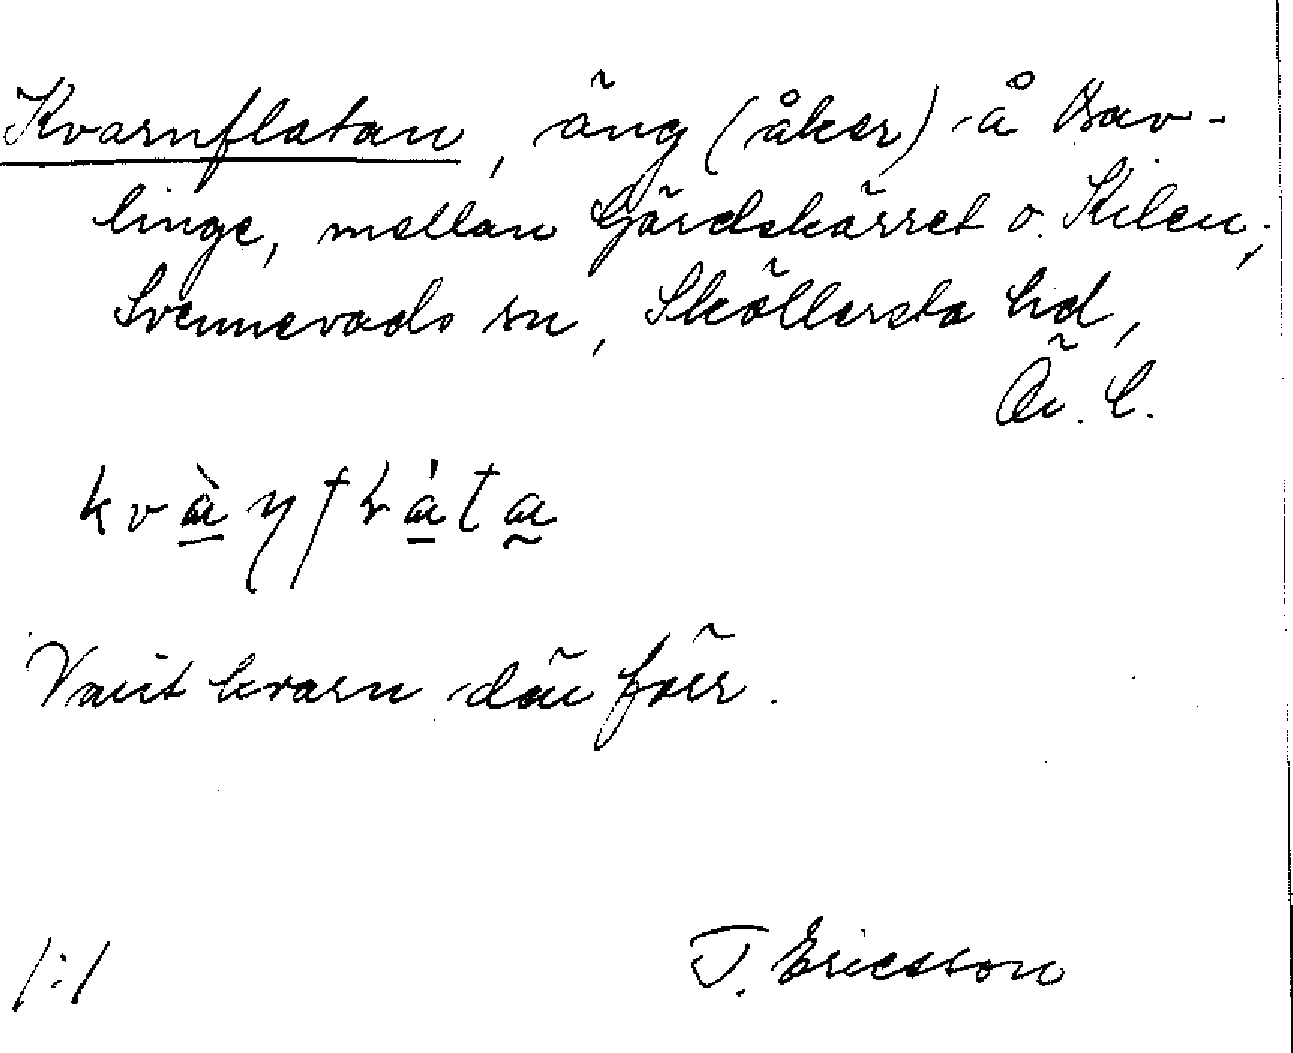 Kvarnflatan, äng (åker) å Bav-
linge, mellan Gärdskärret o. Kilen,
Svennevads sn, Sköllersta hd,
Ör. l.
Varit kvarn där förr.
1:1
T. Ericsson